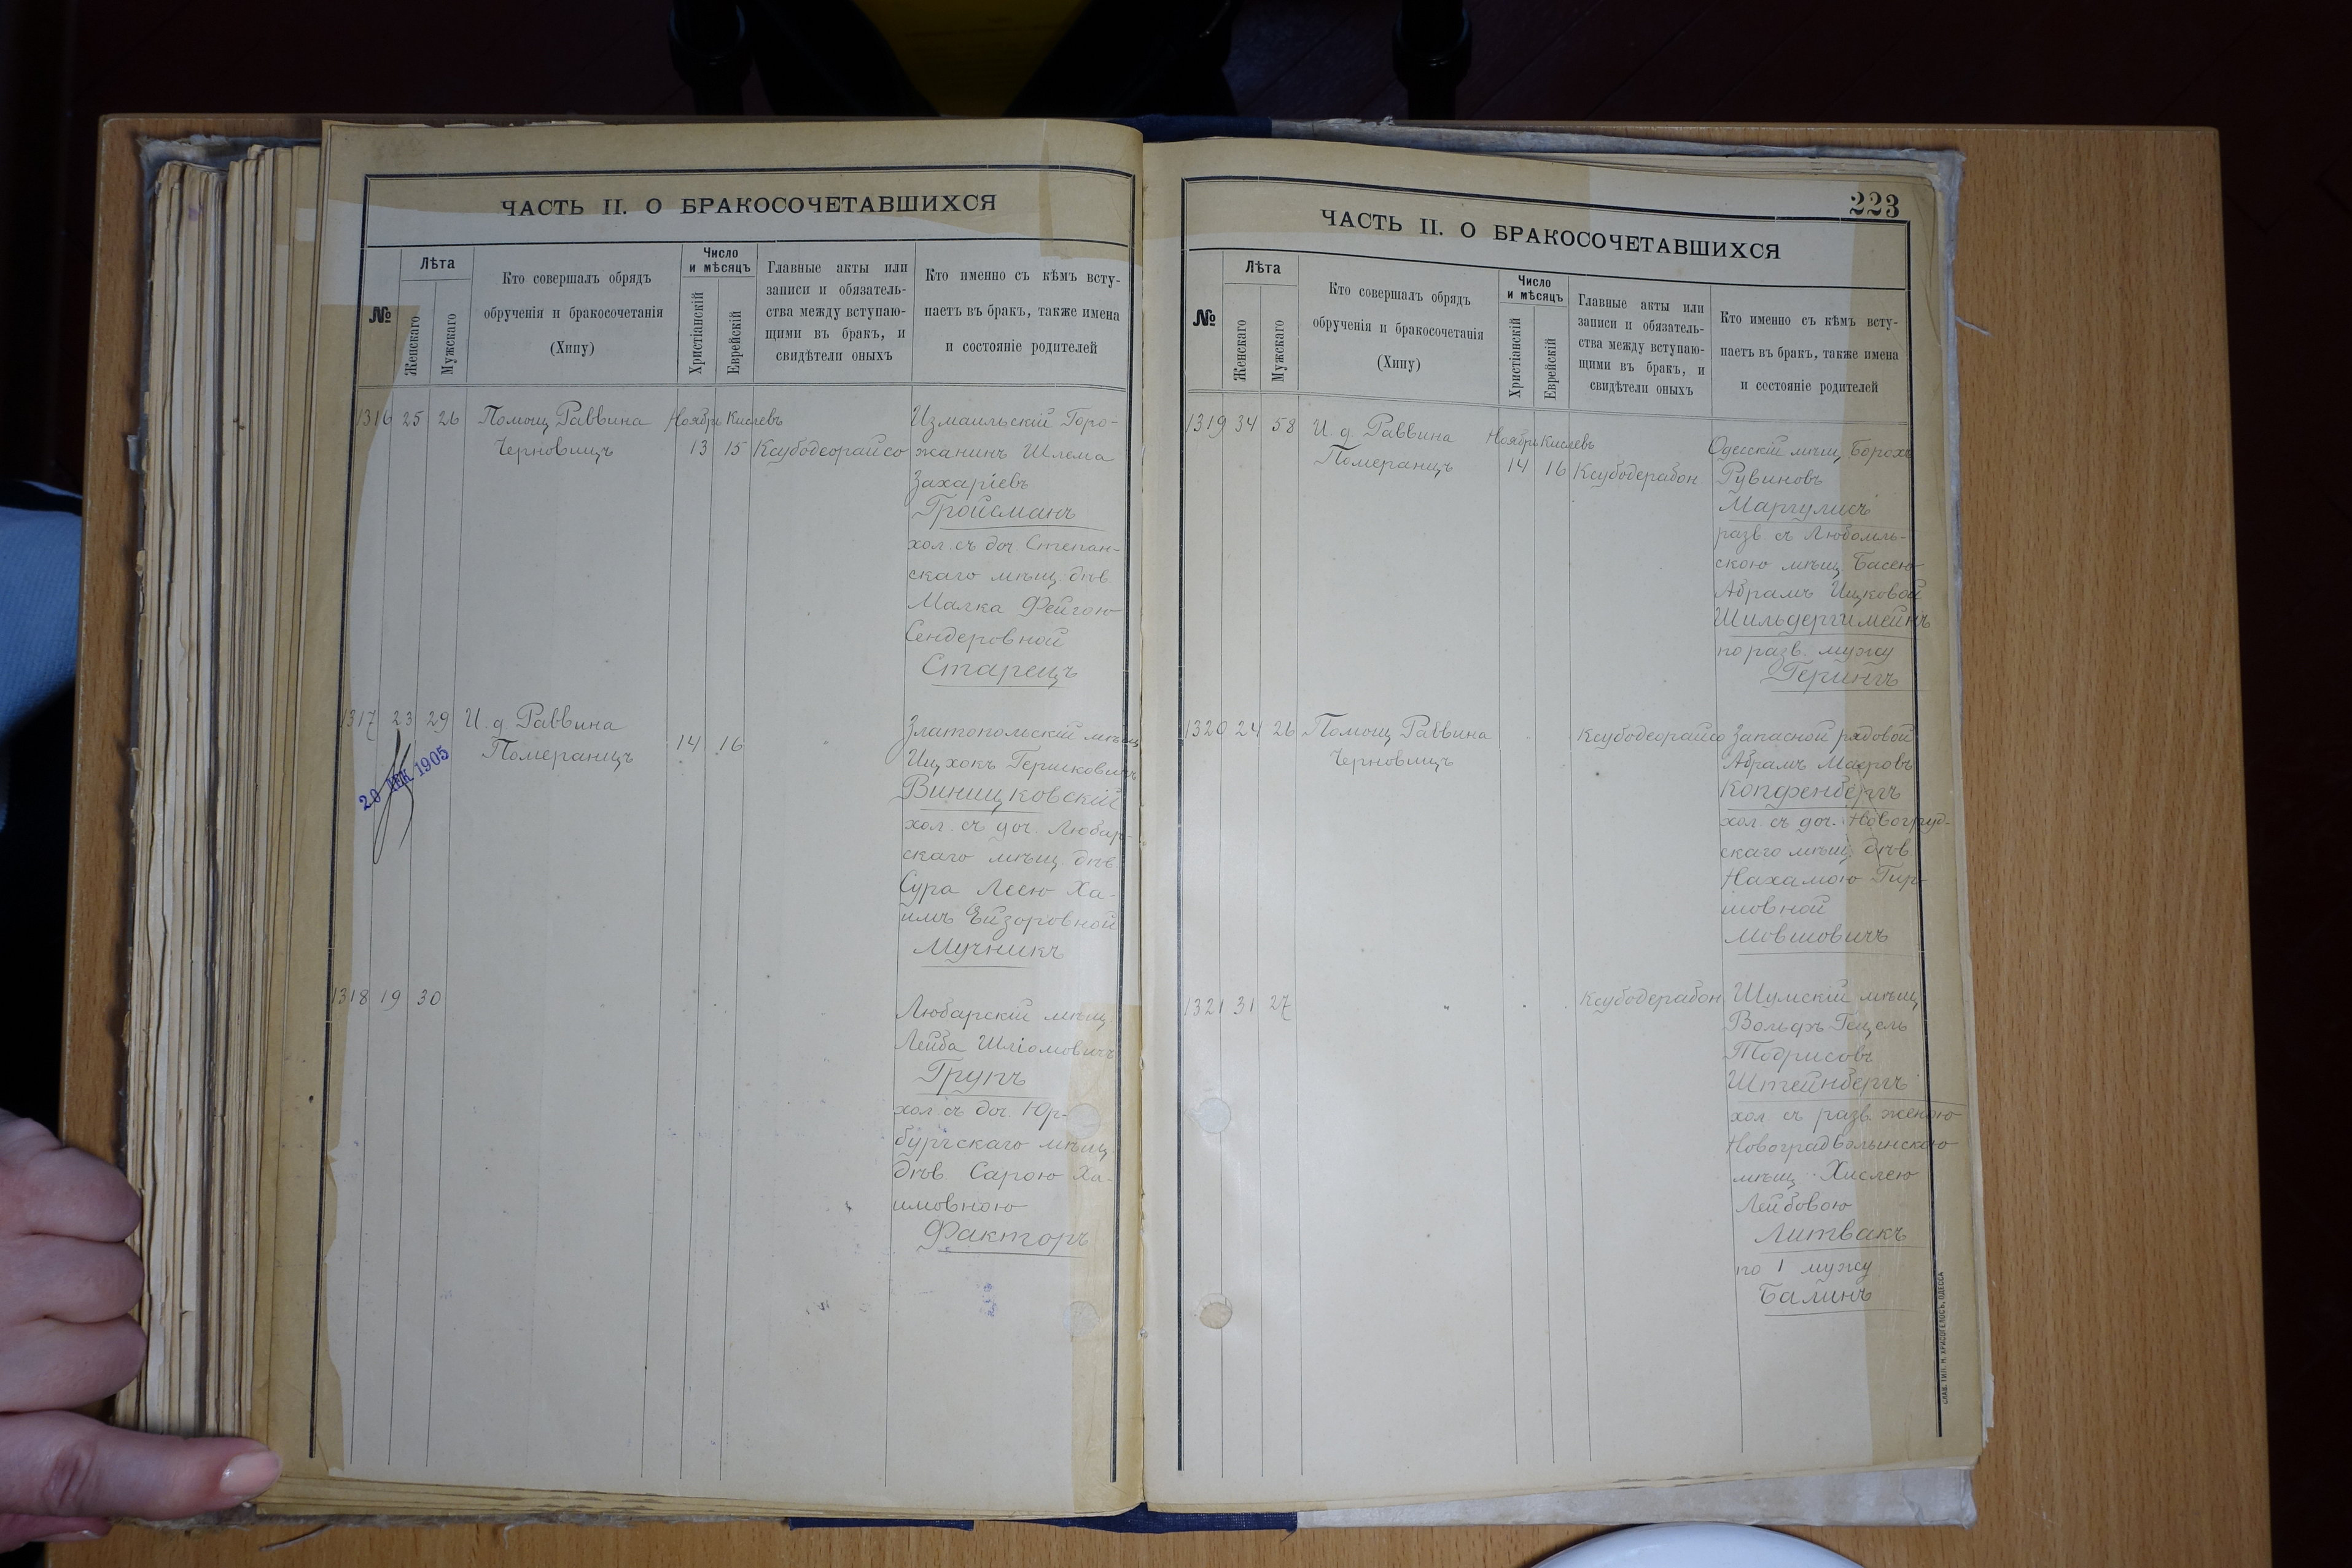 ЧАСТЬ II. О БРАКОСОЧЕТАВШИХСЯ
№
Лѣта
Женскаго
Мужскаго
Кто совершалъ обрядъ
обрученія и бракосочетанія
(Хипу)
Число
и мѣсяцъ
Христіанскій
Еврейскій
Главные акты или
записи и обязатель-
ства между вступаю-
щими въ бракъ, и
свидѣтели оныхъ
Кто именно съ кѣмъ всту-
паетъ въ бракъ, также имена
и состояніе родителей
1316 25 26 Помощ Раввина Ноябрь Кислевъ Измаильскій Горо-
Черновицъ 13 15 Ксубодеорайсо жанинъ Шлема
Захаріевъ
Гройсманъ
хол. съ доч. Степан-
скаго мѣщ. дѣв.
Малка Фейгою
Сендеровной
Старецъ
1317 23 29 И. д Раввина Златопольскій мѣщ
Померанцъ 14 16 Ицхокъ Гершковичъ
20 ДЕК 1905
Виницковскій
хол. съ доч. Любар-
скаго мѣщ. дѣв.
Сура Леею Ха-
имъ Ейзоровной
Мучникъ
1318 19 30
Любарскій мѣщ.
Лейба Шліомовичъ
Групъ
хол. съ доч. Юр-
бургскаго мѣщ.
дѣв. Сарою Ха-
имовною
Факторъ
223
ЧАСТЬ II. О БРАКОСОЧЕТАВШИХСЯ
№
Лѣта
Женскаго
Мужскаго
Кто совершалъ обрядъ
обрученія и бракосочетанія
(Хипу)
Число
и мѣсяцъ
Христіанскій
Еврейскій
Главные акты или
записи и обязатель-
ства между вступаю-
щими въ бракъ, и
свидѣтели оныхъ
Кто именно съ кѣмъ всту-
паетъ въ бракъ, также имена
и состояніе родителей
1319 34 58 И. д. Раввина Ноябрь Кислевъ Одесскій мѣщ. Борохъ
Померанцъ 14 16 Ксубодерабон Рувиновъ
Маргулисъ
разв. съ Любомль-
скою мѣщ. Басею
Абрамъ Ицковой
Шильдергимейнъ
по разв. мужу
Герингъ
1320 24 26 Помощ Раввина Ксубодеорайсо Запасной рядовой
Черновицъ Абрамъ Маеровъ
Копфенбергъ
хол. съ доч. Новогруд-
скаго мѣщ. дѣв.
Нахамою Гир-
шовной
Мовшовичъ
1321 31 27 Ксубодерабон Шумскій мѣщ
Вольфъ Гецель
Тодрисовъ
Штейнбергъ
хол съ разв. женою
Новоградволынскою
мѣщ. Хислею
Лейбовою
Литвакъ
по 1 мужу
Балинъ
СЛАВ. ТИП. М. ХРИСОГЕЛОСЪ, ОДЕССА